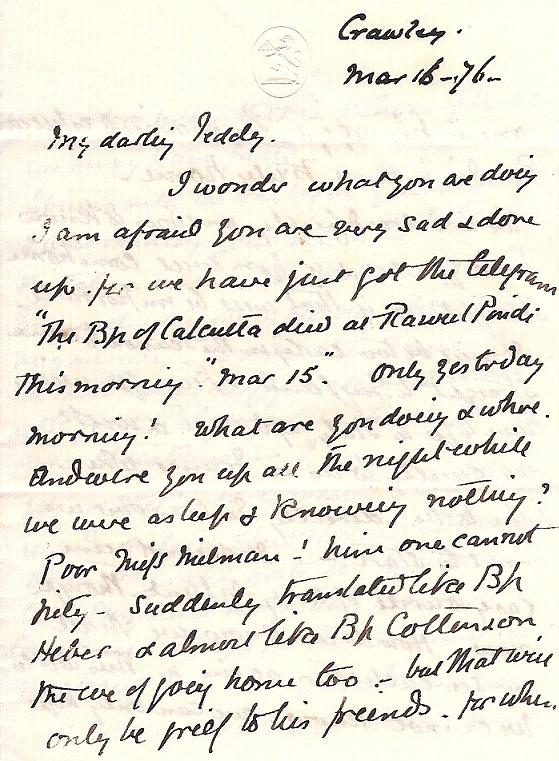 Crawley.
Mar 16 - 76 -
My darling Teddy.
I wonder what you are doing
I am afraid you are very sad & done
up. for we have just got the telegram
"The Bp of Calcutta died at Rawul Pindi
this morning." "Mar 15". Only yesterday
morning! What are you doing & where.
And were you up all the night while
we were asleep & knowing nothing?
Poor Miss Milman! him one cannot
pity - suddenly translated like Bp
Heber & almost like Bp Cotton on
the eve of going home too - but that will
only be grief to his friends. for when